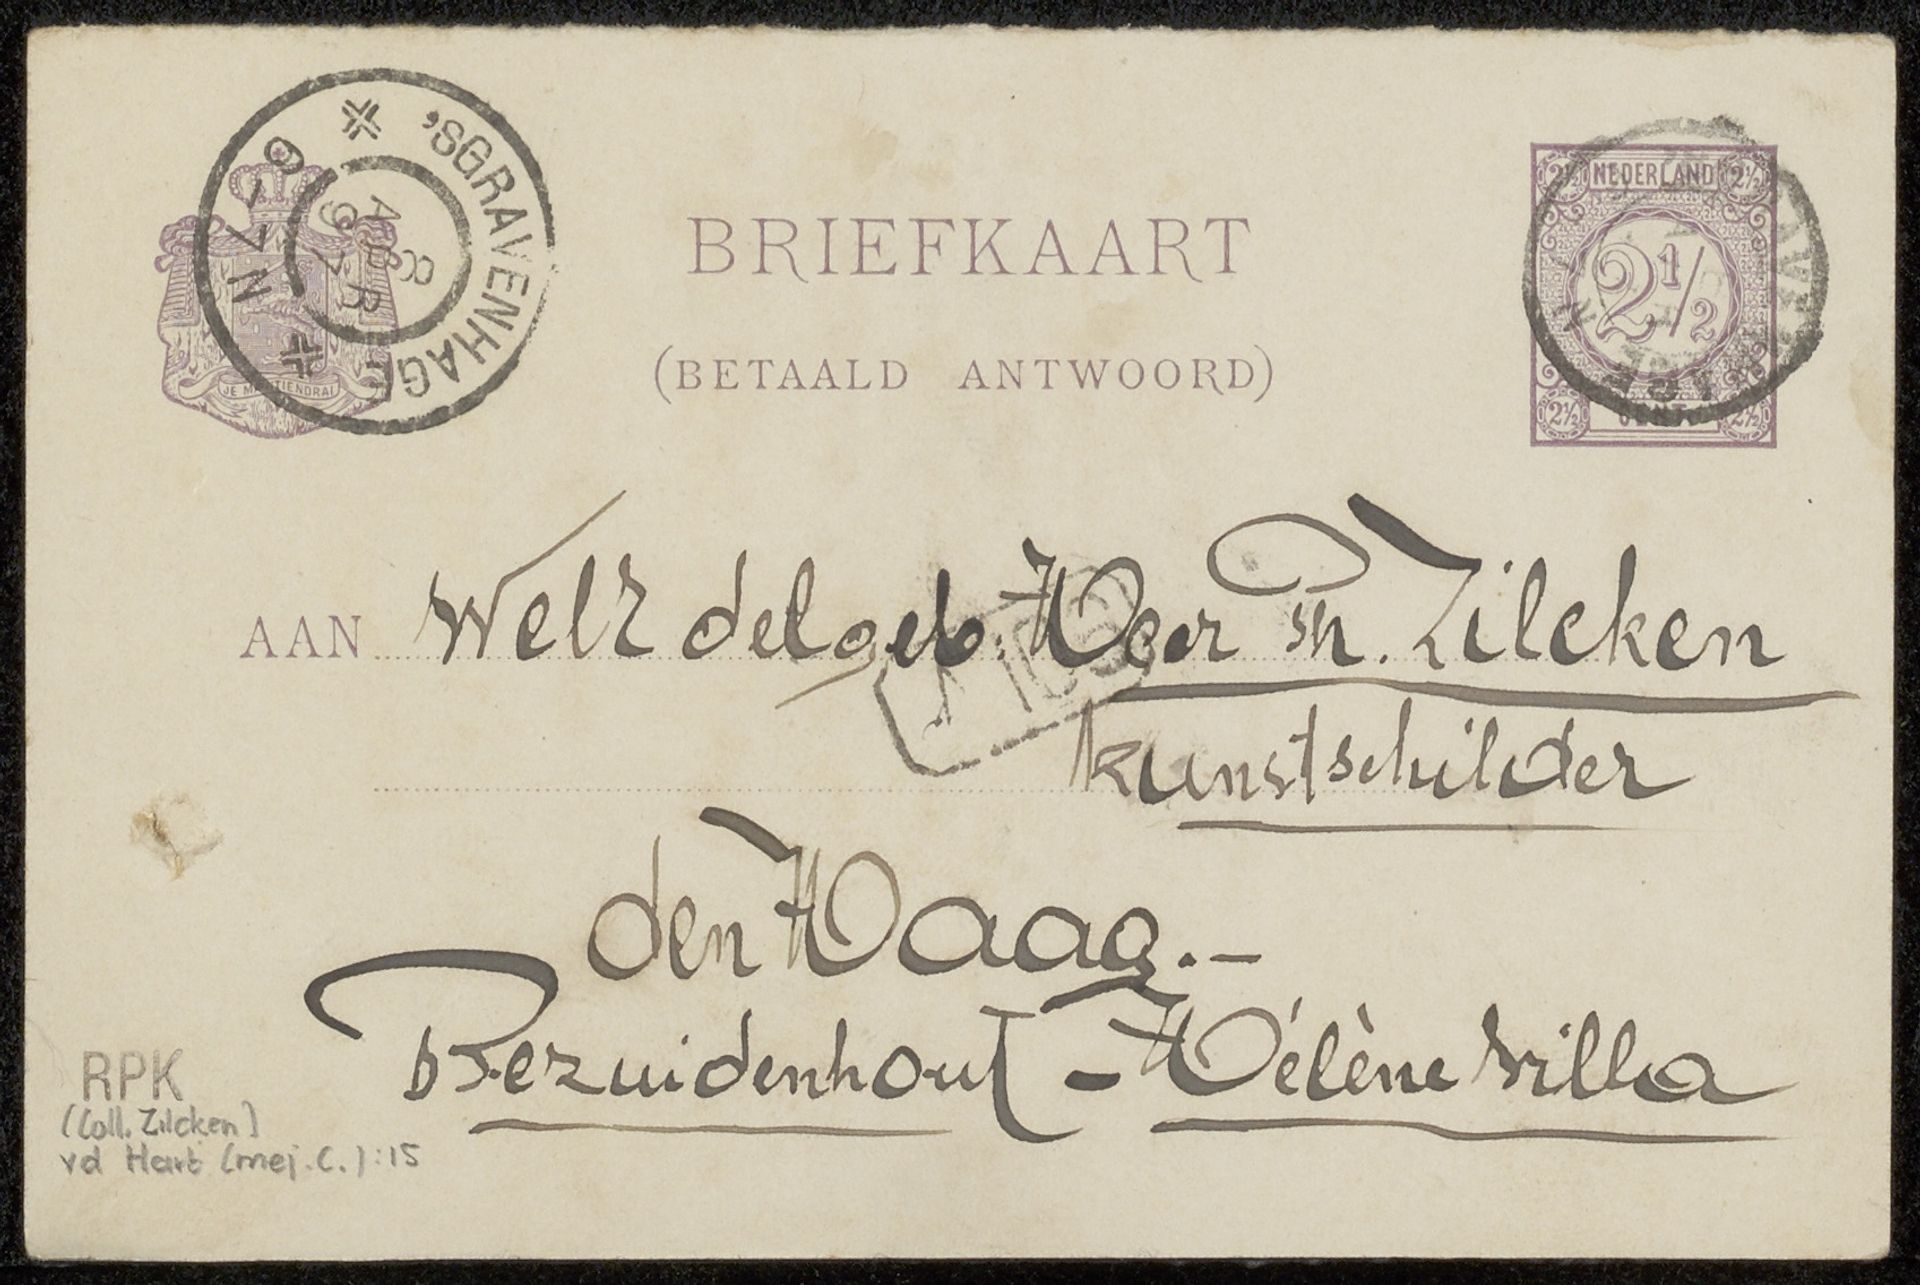 'SGRAVENHAGE
6-7N
8
APR
97
JE MAINTIENDRAI
BRIEFKAART
(BETAALD ANTWOORD)
2½ NEDERLAND 2½
2½
2½ CENT 2½
AAN WelEdelgeb. Heer Ph. Zilcken
Kunstschilder
den Haag.-
Bezuidenhout - Hélène Villa
RPK
(Coll. Zilcken)
vd Hart (mej. C.):15